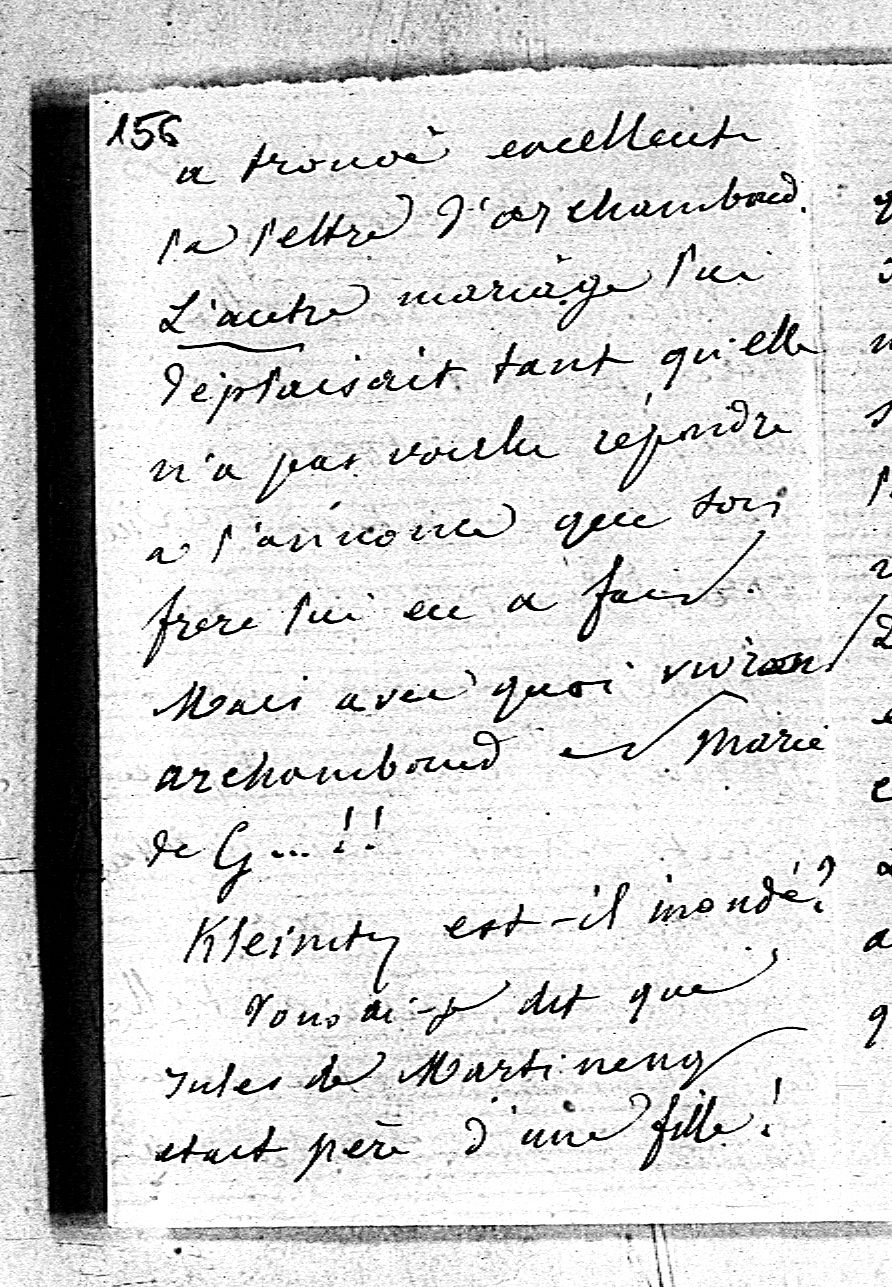 156
a trouvé excellente
la lettre d'archambaud.
L'autre mariage lui
déplaisait tant qu'elle
n'a pas voulu répondre
a l'annonce que son
frère lui en a fait.
Mais avec quoi vivront
archambaud et Marie
de G...!!
est-il inondé?
Vous ai-je dit que
Jules de Martineng
etait père d'une fille!